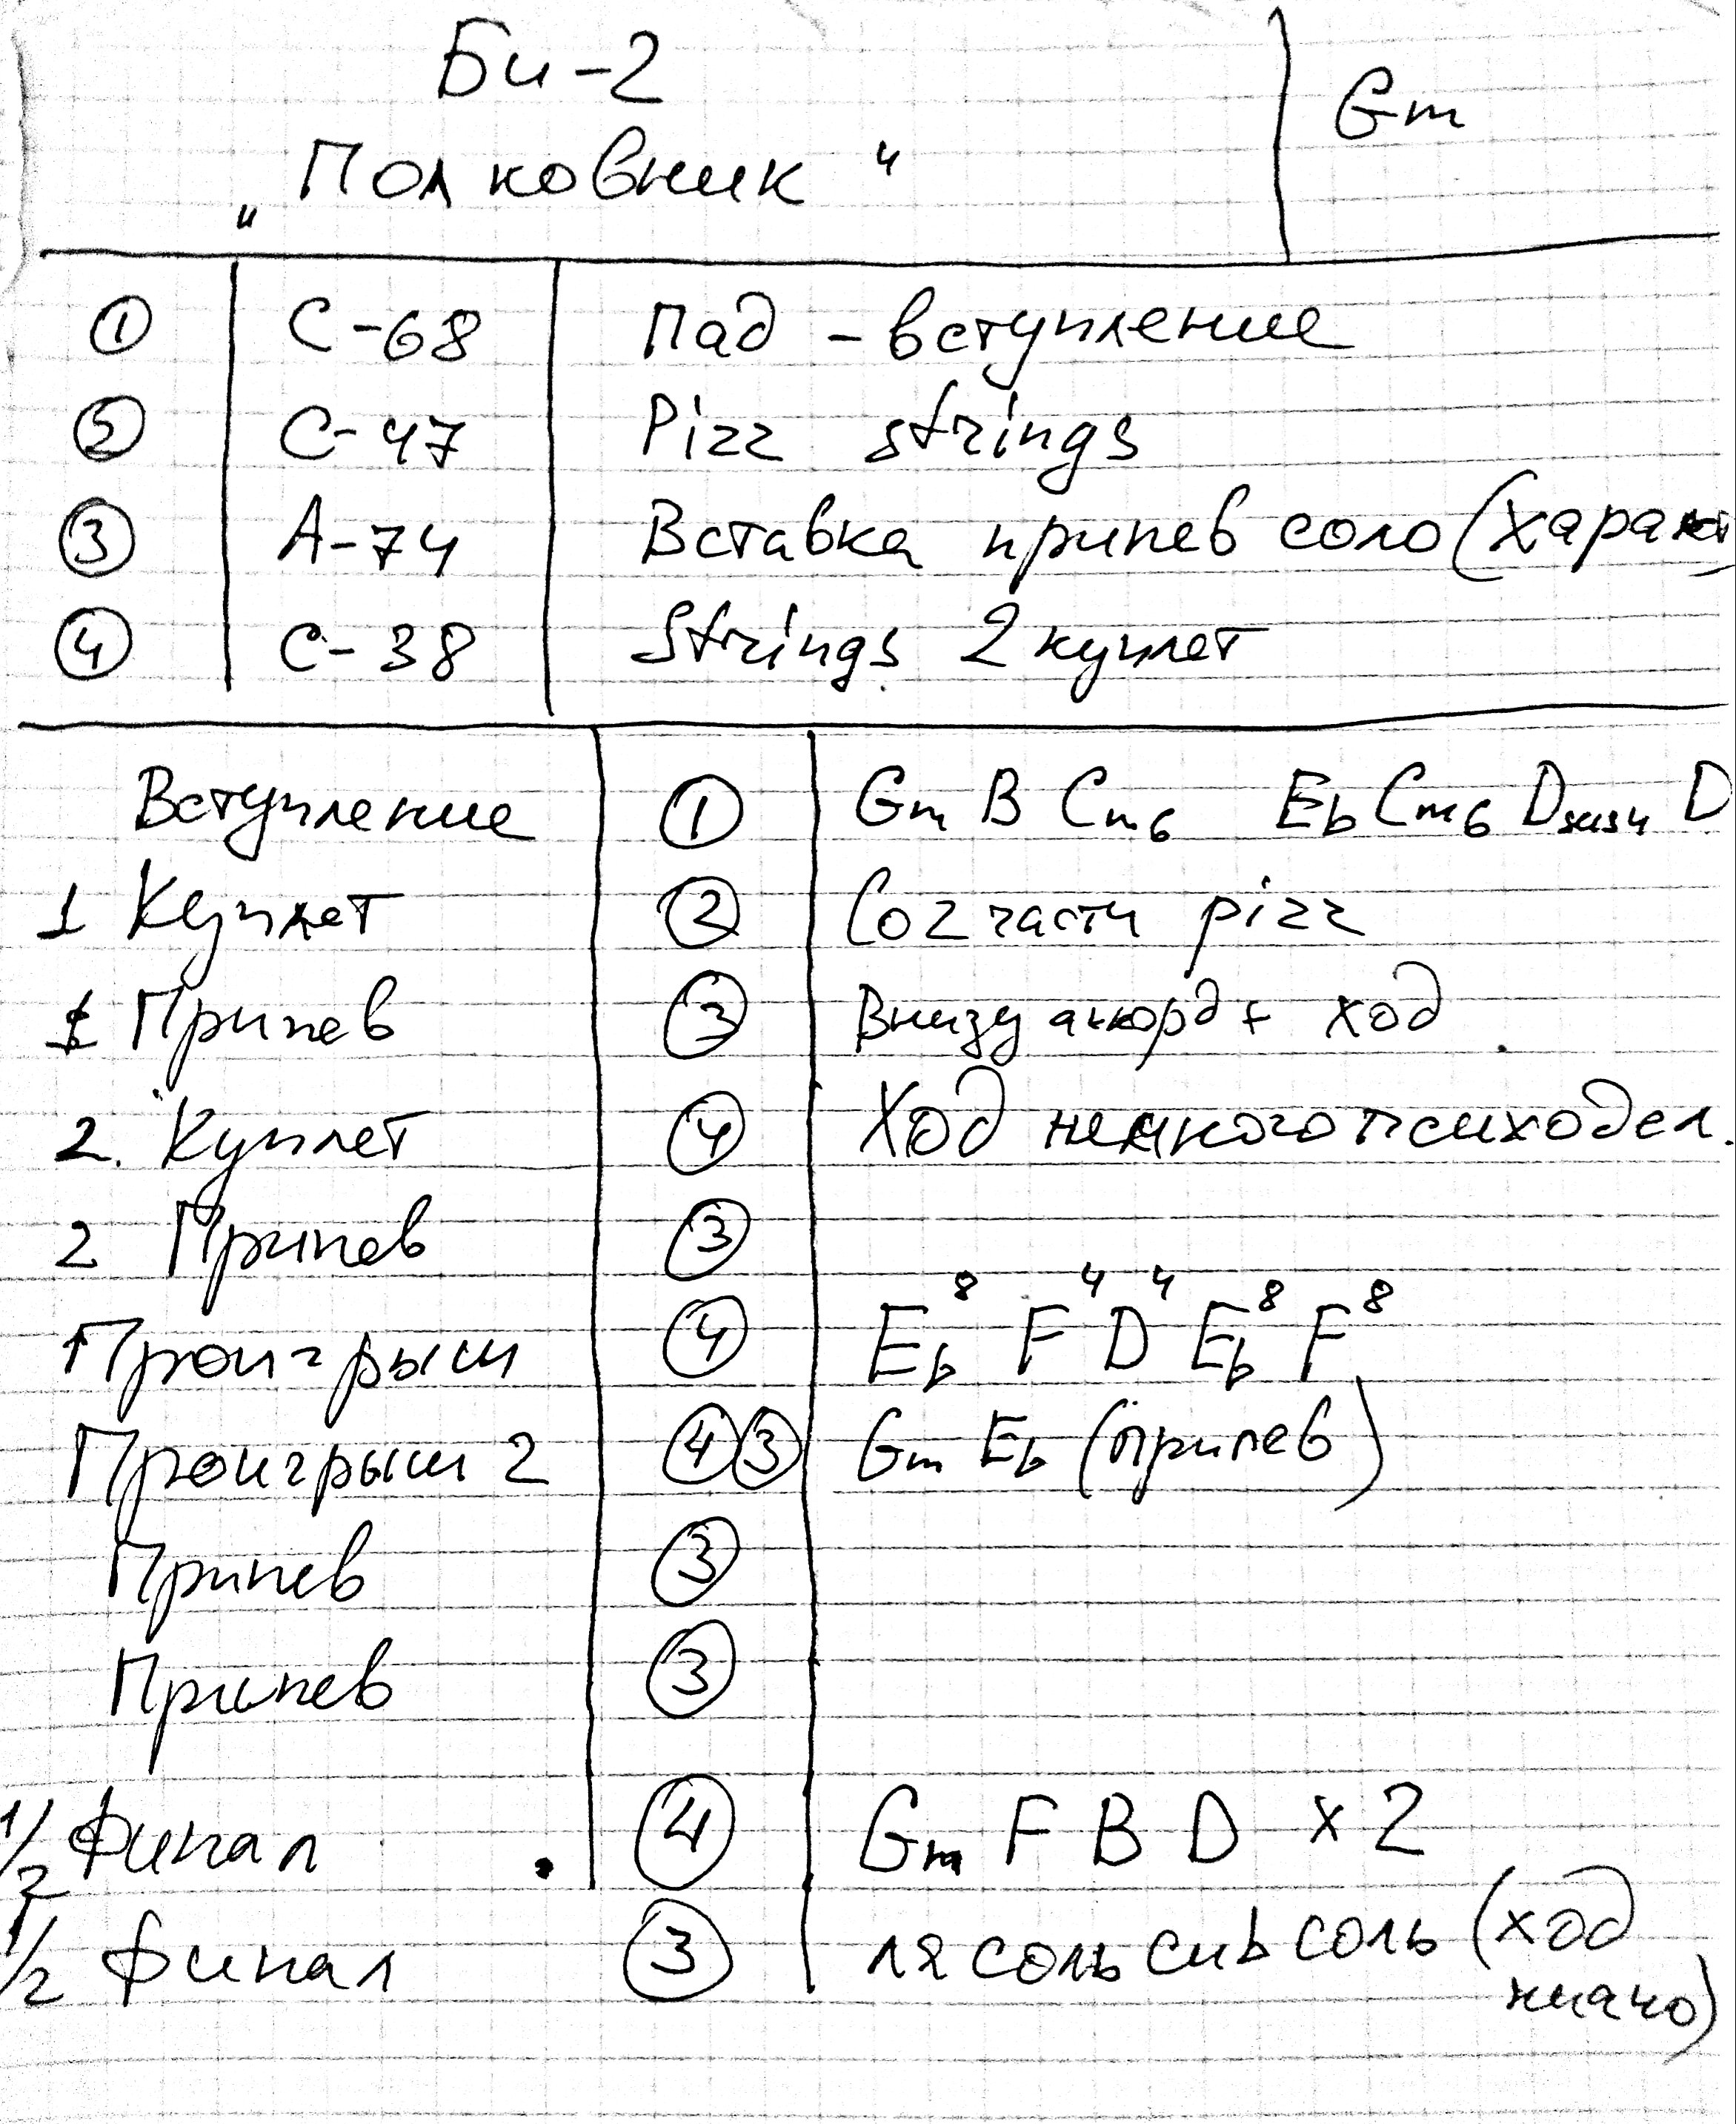 Би-2
Gm
„Полковник“
① C-68 Пад - вступление
② C-47 Pizz strings
③ A-74 Вставка припев соло (характ)
④ C-38 Strings 2 куплет
Вступление ① Gm B Cm6 Eb Cm6 Dsus4 D
1 Куплет ② Со 2 части pizz
1 Припев ③ Внизу аккорд + ход
2. Куплет ④ Ход немного психодел.
2 Припев ③
Проигрыш ④ Eb⁸ F⁴ D⁴ Eb⁸ F⁸
Проигрыш 2 ④③ Gm Eb (припев)
Припев ③
Припев ③
1/2 Финал ④ Gm F B D x 2
1/2 Финал ③ ля соль сиb соль (ход
пиано)